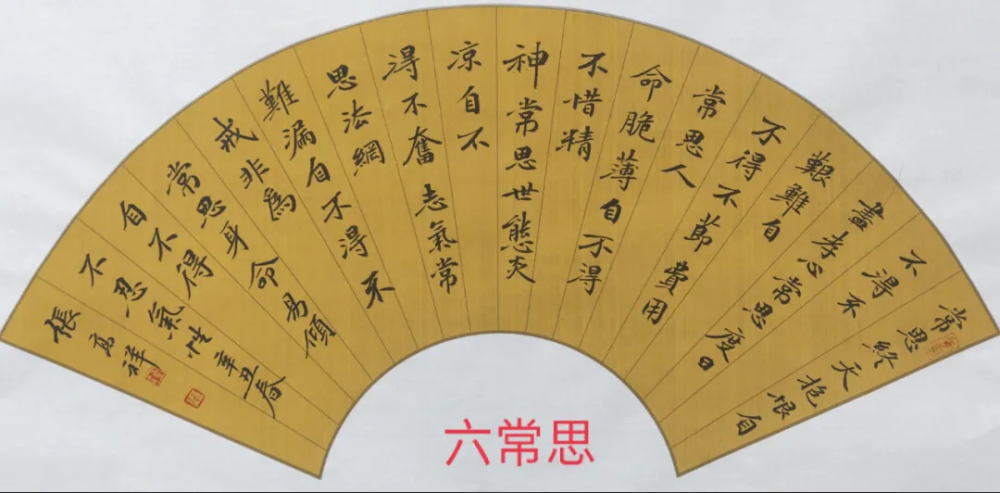 常思終天抱恨自
不得不
盡孝心常思度日
艱難自
不得不節費用
常思人
命脆薄自不得
不惜精
神常思世態炎
涼自不
得不奮志氣常
思法網
難漏自不得不
戒非爲
常思身命易傾
自不得
不忍氣性辛丑春
張高祥
六常思